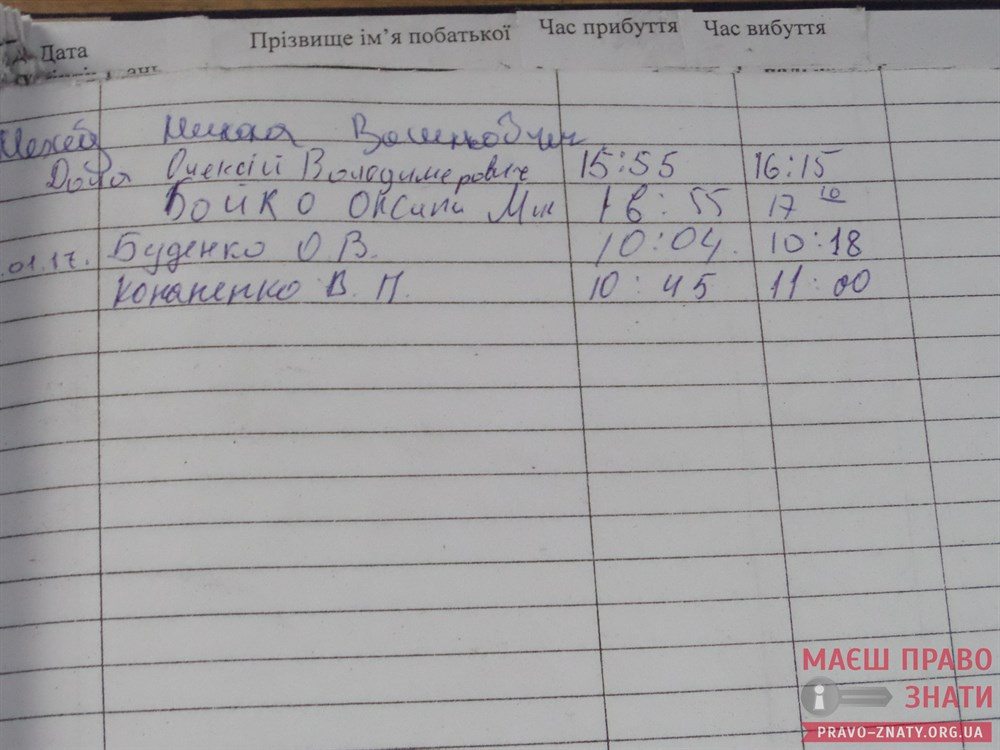 Дата Прізвище ім’я побатької Час прибуття Час вибуття
Микола
Олексій Володимерович 15:55 16:15
БОЙКО Оксана Мик 16:55 17 10
.01.17. Буденко О В. 10:04. 10:18
Конаненко В. П. 10:45 11:00
МАЄШ ПРАВО
ЗНАТИ
PRAVO-ZNATY.ORG.UA